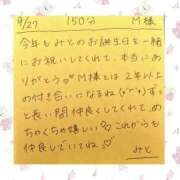 9/27 150分 M様
今年もみとのお誕生日を一緒
にお祝いしてくれて、本当にあ
りがとう♡M様とは2年以上
の付き合いになるね(*ˊᵕˋ*)ずっ
と長い間仲良くしてくれてめ
ちゃくちゃ嬉しい これからも
仲良しでいてね♡
みと